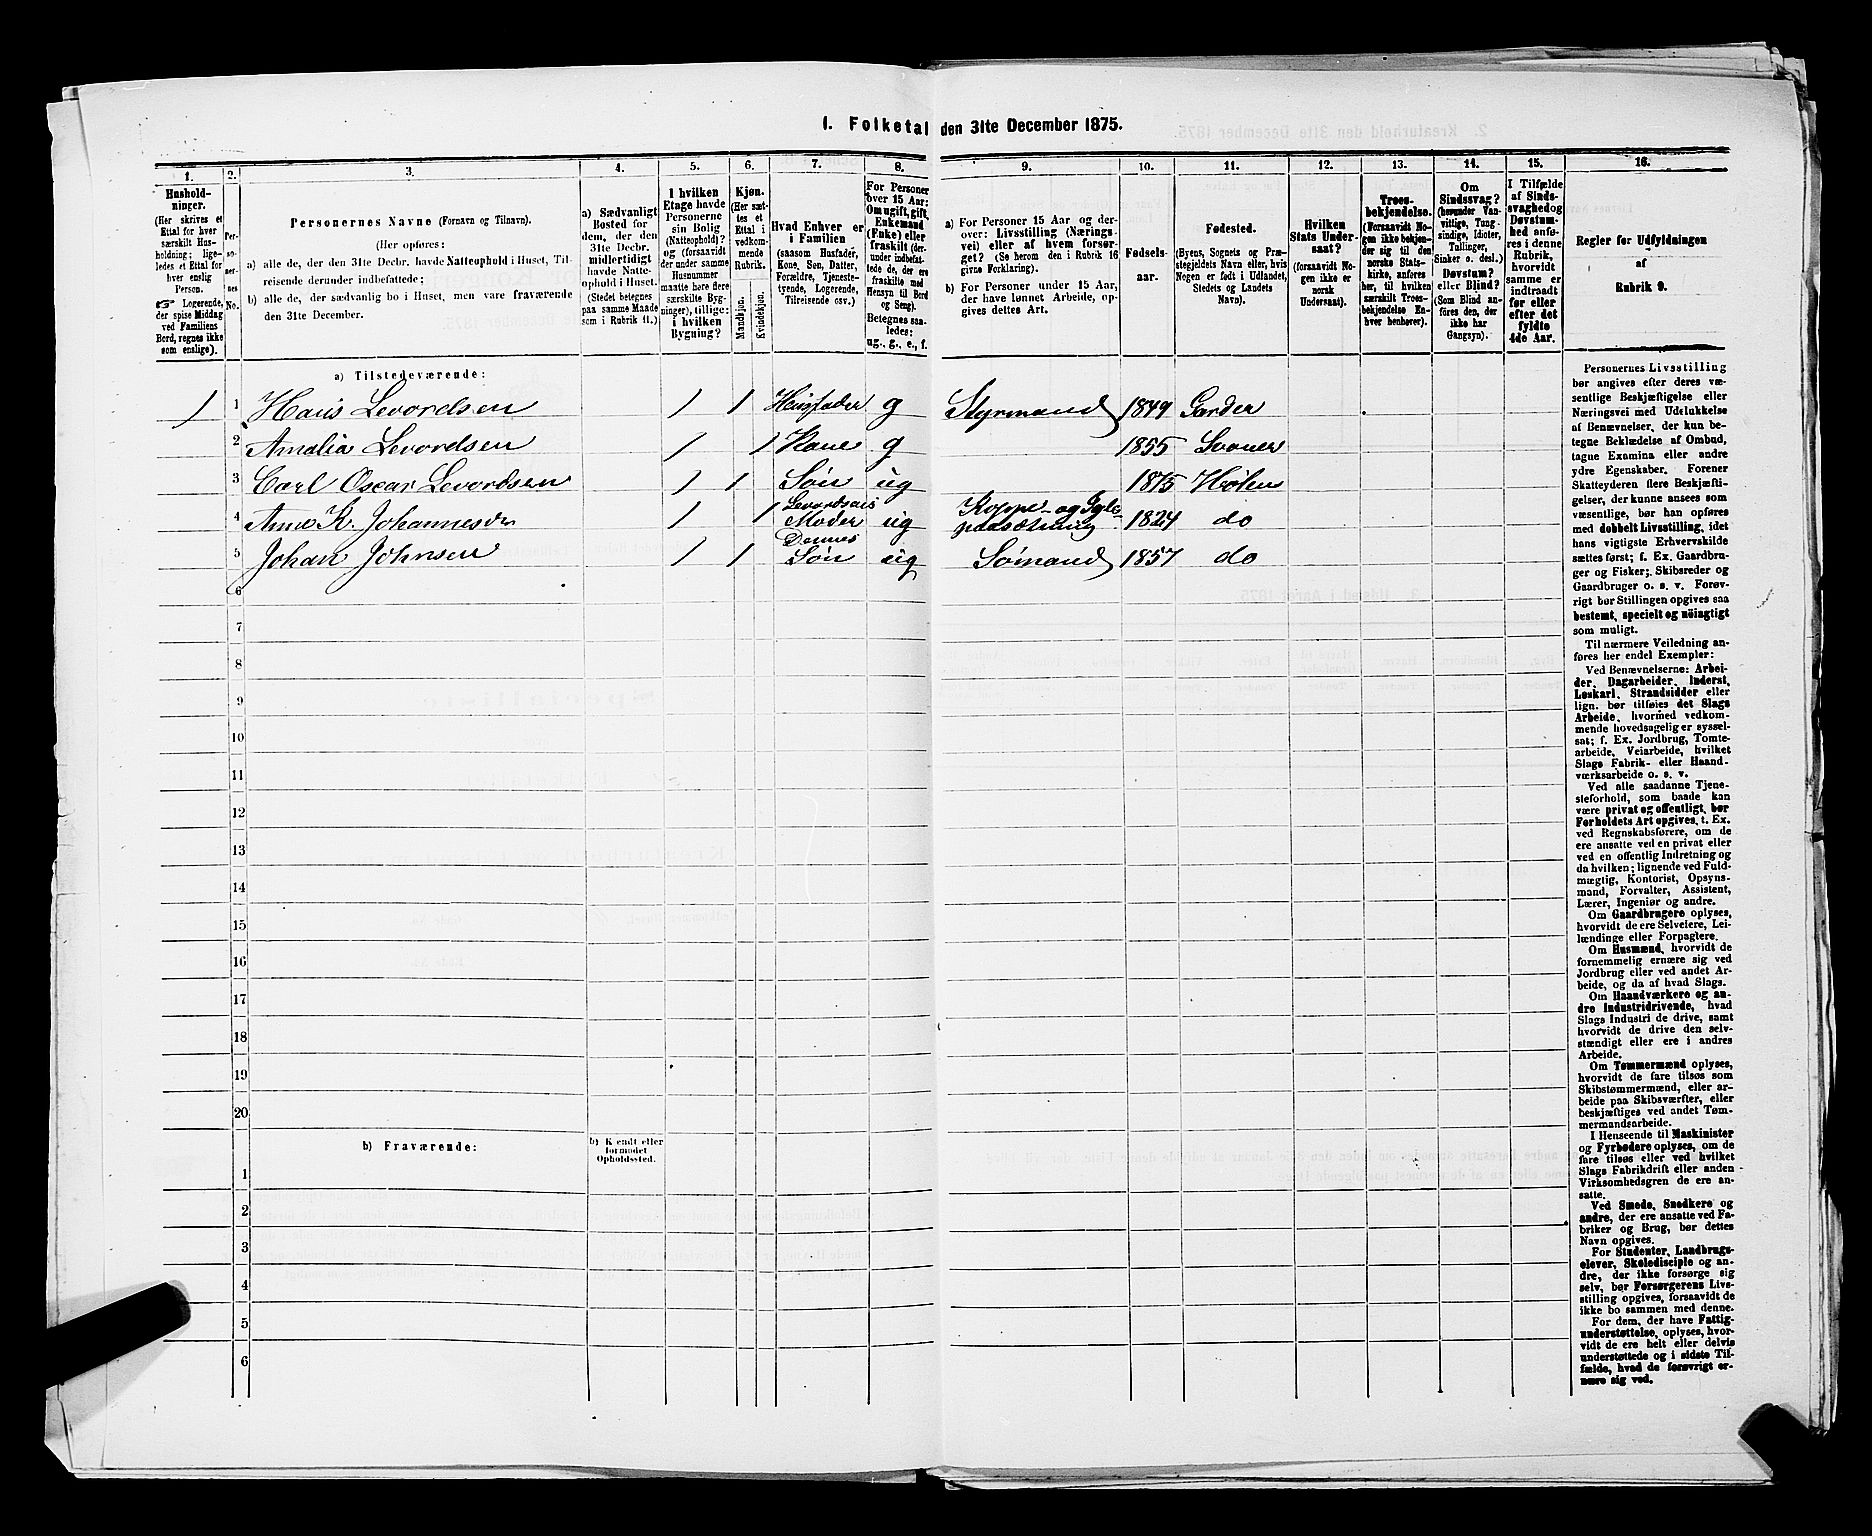 1. Folketal den 31te December 1875.
1. 2. 3. 4. 5. 6. 7. 8. 9. 10. 11. 12. 13. 14. 15. 16.
Hushold-
ninger.
(Her skrives et
Ettal for hver
særskilt Hus-
holdning; lige-
ledes et Ettal for
hver enslig
Person.
☞ Logerende,
der spise Middag
ved Familiens
Bord, regnes ikke
som enslige).
Per-
soner-
nes
No.
Personernes Navne (Fornavn og Tilnavn).
(Her opføres:
a) alle de, der den 31te Decbr. havde Natteophold i Huset, Til-
reisende derunder indbefattede;
b) alle de, der sædvanlig bo i Huset, men vare fraværende
den 31te December.
a) Sædvanligt
Bosted for
dem, der den
31te Decbr.
midlertidigt
havde Natte-
ophold i Huset.
(Stedet betegnes
paa samme Maade
som i Rubrik 11.)
I hvilken
Etage havde
Personerne
sin Bolig
(Natteophold)?
og (forsaavidt
der under samme
Husnummer
maatte høre flere
særskilte Byg-
ninger), tillige:
i hvilken
Bygning?
Kjøn.
(Her sæt-
tes et
Ettal i
vedkom-
mende
Rubrik.
Mandkjøn.
Kvindekjøn.
Hvad Enhver er
i Familien
(saasom Husfader,
Kone, Søn, Datter,
Forældre, Tjeneste-
tyende, Logerende,
Tilreisende osv.)
For Personer
over 15 Aar:
Om ugift, gift,
Enkemand
(Enke) eller
fraskilt (der-
under indbefat-
tede de, der ere
fraskilte med
Hensyn til Bord
og Seng).
Betegnes saa-
ledes:
ug., g., e., f.
a) For Personer 15 Aar og der-
over: Livsstilling (Nærings-
vei) eller af hvem forsør-
get? (Se herom den i Rubrik 16
givne Forklaring).
b) For Personer under 15 Aar,
der have lønnet Arbeide, op-
gives dettes Art.
Fødsels-
aar.
Fødested.
(Byens, Sognets og Præ-
stegjeldets Navn eller, hvis
Nogen er født i Udlandet,
Stedets og Landets
Navn).
Hvilken
Stats Under-
saat?
(forsaavidt No-
gen ikke er
norsk
Undersaat).
Troes-
bekjendelse.
(Forsaavidt No-
gen ikke bekjen-
der sig til den
norske Stats-
kirke, anføres
her, til hvilken
særskilt Troes-
bekjendelse En-
hver henhører).
Om
Sindssvag?
(herunder Van-
vittige, Tung-
sindige, Idioter,
Tullinger,
Sinker o. desl.)
Døvstum?
eller Blind?
(Som Blind an-
føres den, der
ikke har
Gangsyn).
I Tilfælde
af Sinds-
svaghed og
Døvstum-
hed anfø-
res i denne
Rubrik,
hvorvidt
samme er
indtraadt
før eller
efter det
fyldte
4de Aar.
Regler for Udfyldningen
af
Rubrik 9.
a) Tilstedeværende:
1 1 Hans Levordsen 1 1 Husfader g Styrmand 1849 Garder
2 Amalia Levordsen 1 1 Kone g 1855 Svaner
3 Carl Oscar Levordsen 1 1 Søn ug 1875 Høken
4 Anne K. Johannesdr 1 1 Levordsens Moder ug Koppe- og Igle- paasætning 1824 do
5 Johan Johnsen 1 1 Dennes Søn ug Sømand 1857 do
6
7
8
9
10
11
12
13
14
15
16
17
18
19
20
b) Fraværende:
b) Kjendt eller
formodet
Opholdssted.
1
2
3
4
5
6
Personernes Livsstilling
bør angives efter deres væ-
sentlige Beskjæftigelse eller
Næringsvei med Udelukkelse
af Benævnelser, der kun be-
tegne Beklædelse af Ombud,
tagne Examina eller andre
ydre Egenskaber. Forener
Skatteyderen flere Beskjæfti-
gelser, der kunne ansees som
væsentlige, bør han opføres
med dobbelt Livsstilling, idet
hans vigtigste Erhvervskilde
sættes først; f. Ex. Gaardbru-
ger og Fisker; Skibsreder og
Gaardbruger o. s. v. Forøv-
rigt bør Stillingen opgives saa
bestemt, specielt og nøiagtigt
som muligt.
Til nærmere Veiledning an-
føres her endel Exempler:
Ved Benævnelserne: Arbei-
der, Dagarbeider, Inderst,
Løskarl, Strandsidder eller
lign. bør tilføies det Slags
Arbeide, hvormed vedkom-
mende hovedsagelig er syssel-
sat; f. Ex. Jordbrug, Tomte-
arbeide, Veiarbeide, hvilket
Slags Fabrik- eller Haand-
værksarbeide o. s. v.
Ved alle saadanne Tjene-
steforhold, som baade kan
være privat og offentligt, bør
Forholdets Art opgives, t. Ex.
ved Regnskabsførere, om de
ere ansatte ved en privat eller
ved en offentlig Indretning og
da hvilken; lignende ved Fuld-
mægtig, Kontorist, Opsyns-
mand, Forvalter, Assistent,
Lærer, Ingeniør og andre.
Om Gaardbrugere oplyses,
hvorvidt de ere Selveiere, Lei-
lændinge eller Forpagtere.
Om Husmænd, hvorvidt de
fornemmelig ernære sig ved
Jordbrug eller ved andet Ar-
beide, og da af hvad Slags.
Om Haandværkere og an-
dre Industridrivende, hvad
Slags Industri de drive, samt
hvorvidt de drive den selv-
stændigt eller ere i andres
Arbeide.
Om Tømmermænd oplyses,
hvorvidt de fare tilsøs som
Skibstømmermænd, eller ar-
beide paa Skibsværfter, eller
beskjæftiges ved andet Tøm-
mermandsarbeide.
I Henseende til Maskinister
og Fyrbødere oplyses, om de
fare tilsøs eller ved hvilket
Slags Fabrikdrift eller anden
Virksomhedsgren de ere an-
satte.
Ved Smede, Snedkere og
andre, der ere ansatte ved Fa-
briker og Brug, bør dettes
Navn opgives.
For Studenter, Landbrugs-
elever, Skoledisciple og an-
dre, der ikke forsørge sig
selv, bør Forsørgerens Livs-
stilling opgives, forsaavidt de
ikke bo sammen med denne.
For dem, der have Fattig-
understøttelse, oplyses, hvor-
vidt de ere helt eller delvis
understøttede og i sidste Til-
fælde, hvad de forøvrigt er-
nære sig ved.